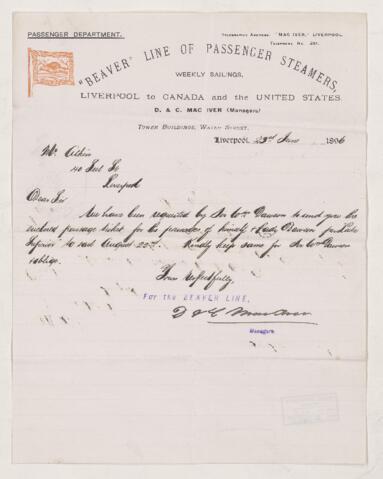 PASSENGER DEPARTMENT.
TELEGRAPHIC ADDRESS, "MAC IVER," LIVERPOOL.
TELEPHONE No.
"BEAVER" LINE OF PASSENGER STEAMERS,
WEEKLY SAILINGS.
LIVERPOOL to CANADA and the UNITED STATES.
D. & C. MAC IVER (Managers)
TOWER BUILDINGS, WATER STREET,
Liverpool, 23rd June 1896
Mr Aikin
40 St
Liverpool
Dear Sir
We have been requested by Sir Wm Dawson to send you the
enclosed passage ticket for the passages of himself & Lady Dawson per Lake
Superior to sail August 22nd. Kindly keep same for Sir Wm Dawson
& oblige.
Yours respectfully,
For the BEAVER LINE,
D & C Mac Iver
Managers.